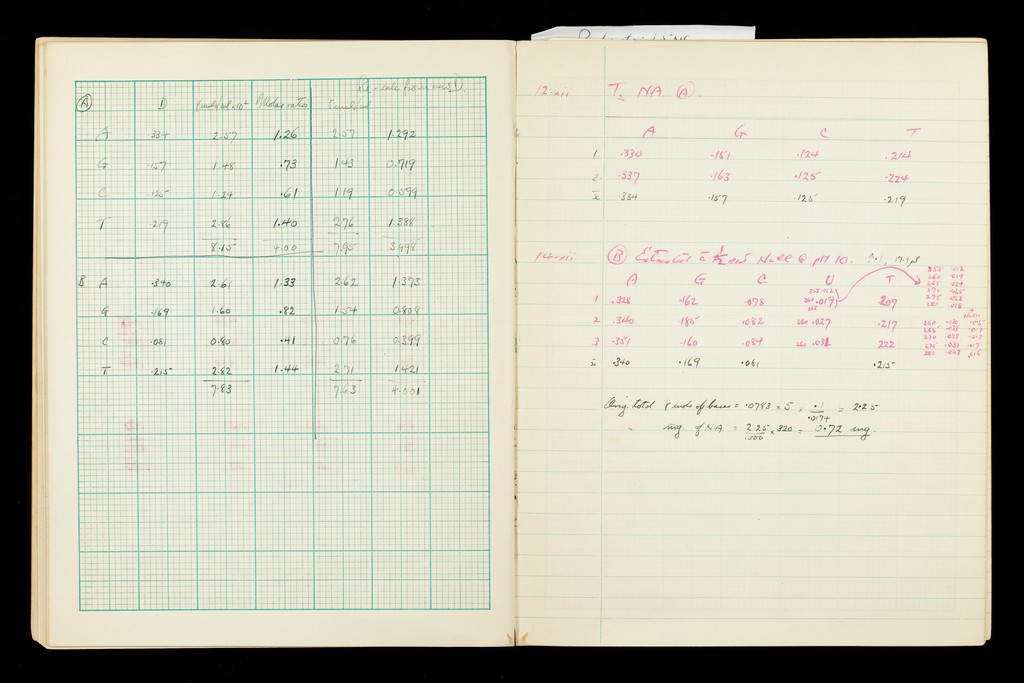 Re-calc from new D.
A D γ mols/ml x10² Molar ratios γ mols/ml
A .334 2.57 1.26 2.57 1.292
G .157 1.48 .73 1.43 0.719
C .125 1.24 .61 1.19 0.599
T .219 2.86 1.40 2.76 1.388
8.15 4.00 7.95 3.998
B A .340 2.61 1.33 2.62 1.373
G .169 1.60 .82 1.54 0.808
C .081 0.80 .41 0.76 0.399
T .215 2.82 1.44 2.71 1.421
7.83 7.63 4.001
12.xii T2 NA. A.
A G C T
1. .330 .151 .124 .214
2. .337 .163 .125 .224
x̄ .334 .157 .125 .219
14.xii B Extracted c ½ NaCl @ pH 10.
A G C U T
1 .328 .162 .078 260 .019 207
2 .340 .185 .082 260 .027 .217
3 .351 .160 .084 260 .031 222
x̄ .340 .169 .081 .215
Orig. total γ mols of bases = .0783 x 5 x .1/.0174 = 2.25
" mg. of NA = 2.25/1000 x 320 = 0.72 mg.